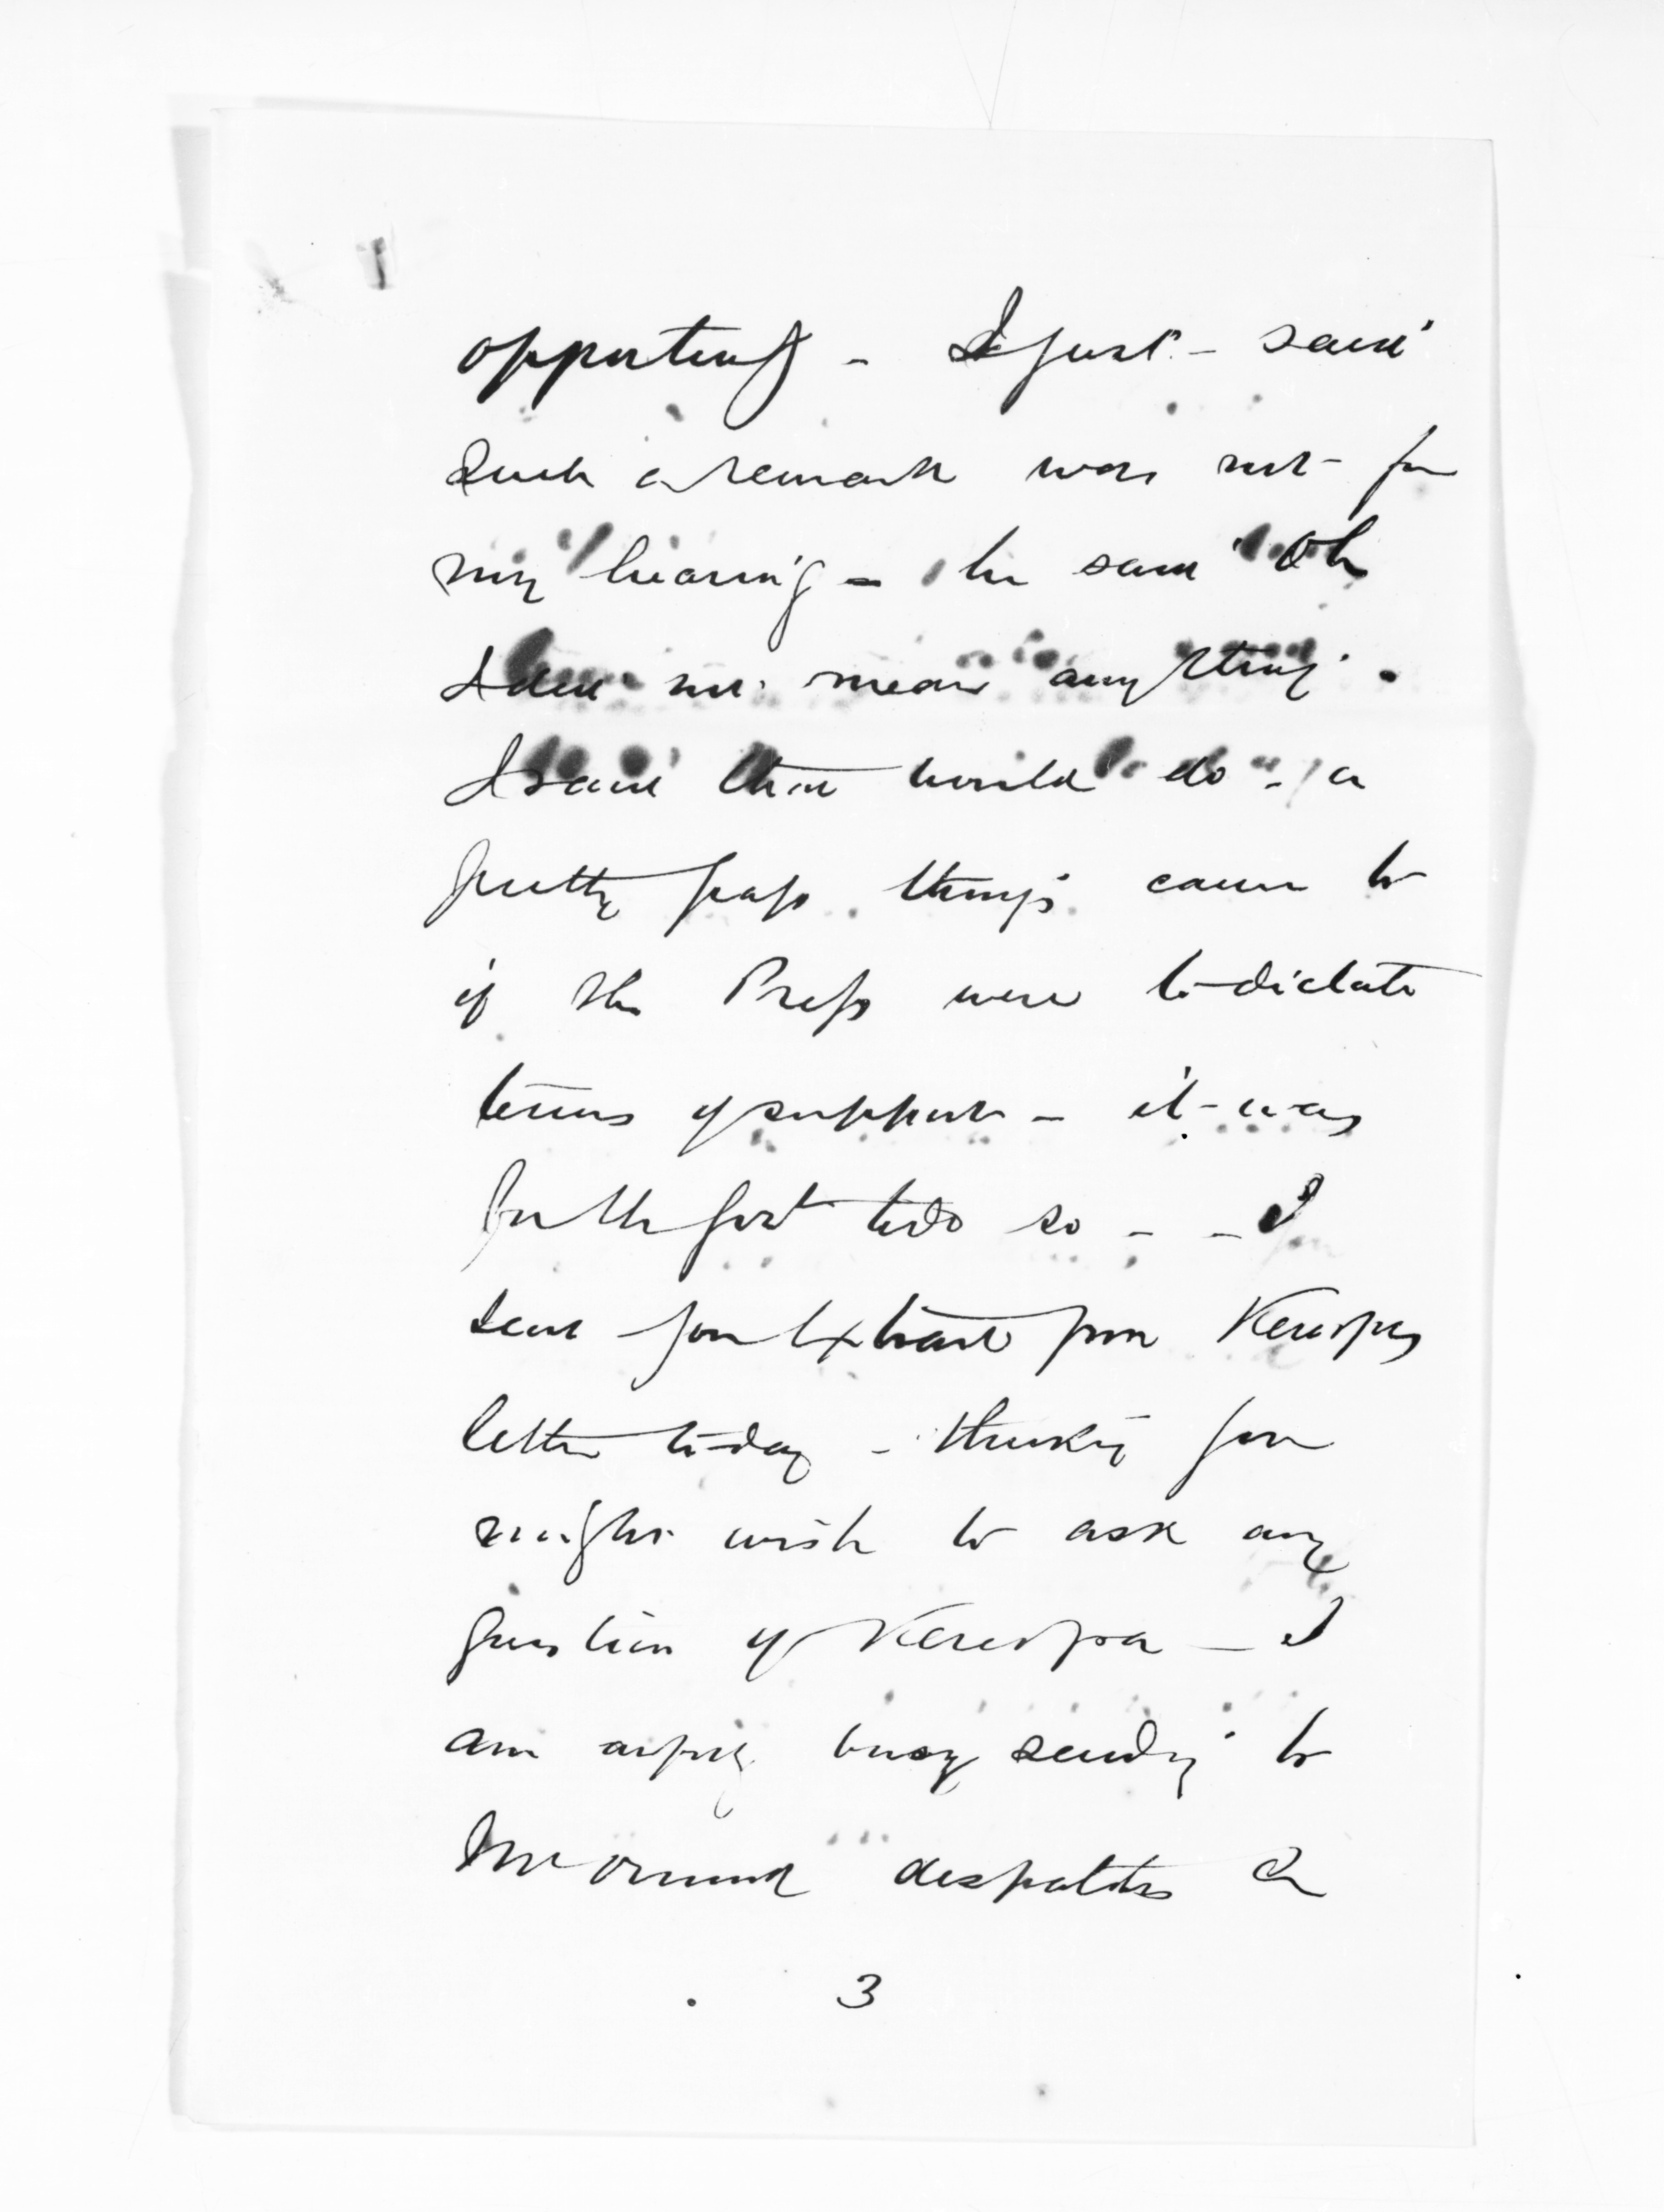 opportunity - I just - said
such a remark was not for
my hearing - he said Oh
I did not mean anything.
I said that would do - a
pretty pass things came to
if the Press were to dictate
terms of support - it was
for the Govt to do so - - I
send you Extract from Kereopas
letter to-day - thinking you
might wish to ask any
question of Kereopa - I
am busy sending to
McCormick despatches &
3